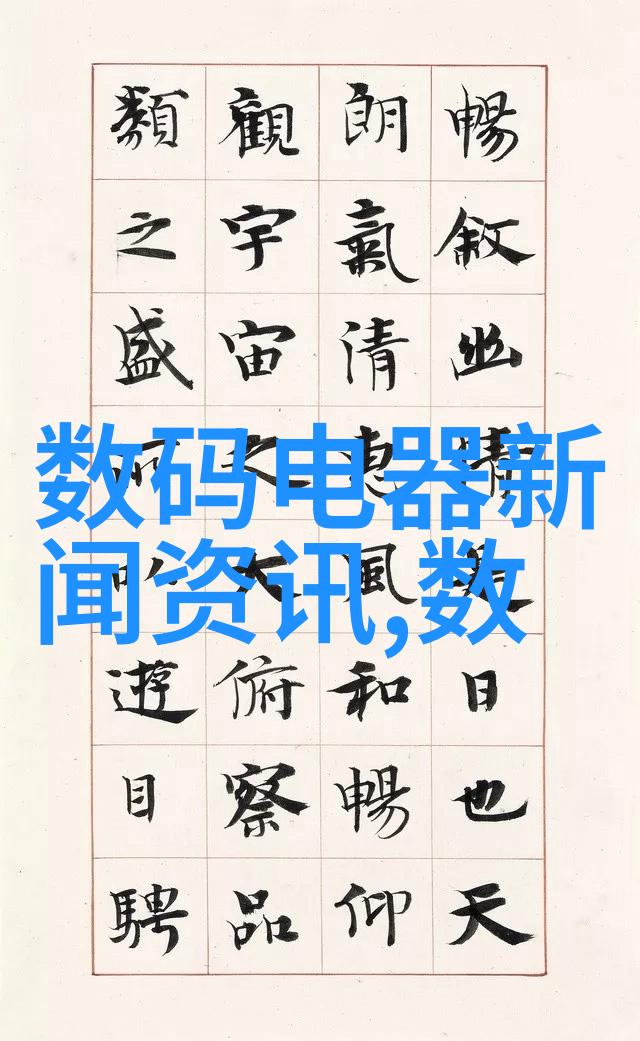 暢敘幽情是日也天
朗氣清惠風和暢仰
觀宇宙之大俯察品
類之盛所以遊目騁
数码电器新
闻资讯,数